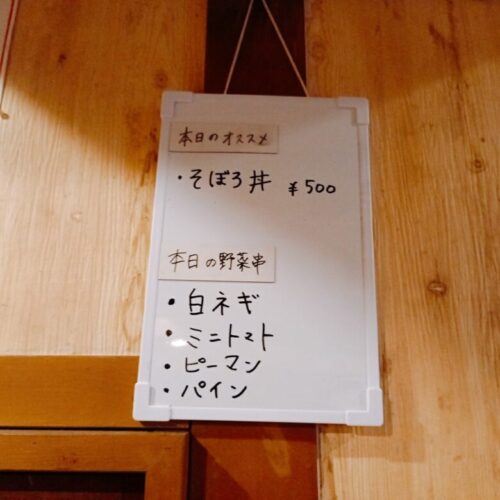 本日のオススメ
・そぼろ丼 ¥500
本日の野菜串
・白ネギ
・ミニトマト
・ピーマン
・パイン